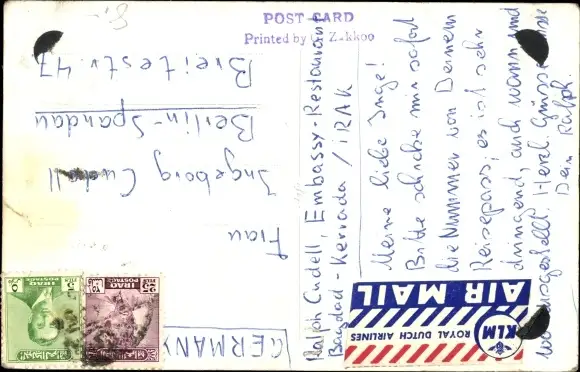 POST CARD
Printed by G. Zakkoo
Ralph Cudell, Embassy-Restaurant
Bagdad - Kerrada / IRAK
Meine liebe Inge!
Bitte schreibe mir sofort
die Nummer von Deinem
Reisepass, es ist sehr
dringend, auch wann und
wo ausgestellt. Herzl. Grüsse
Dein Ralph.
Frau
Ingeborg Cudell
Berlin-Spandau
Breitestr. 47
GERMANY
AIR MAIL
KLM
ROYAL DUTCH AIRLINES
IRAQ
POSTAGE
5
FILS
IRAQ
POSTAGE
25
FILS